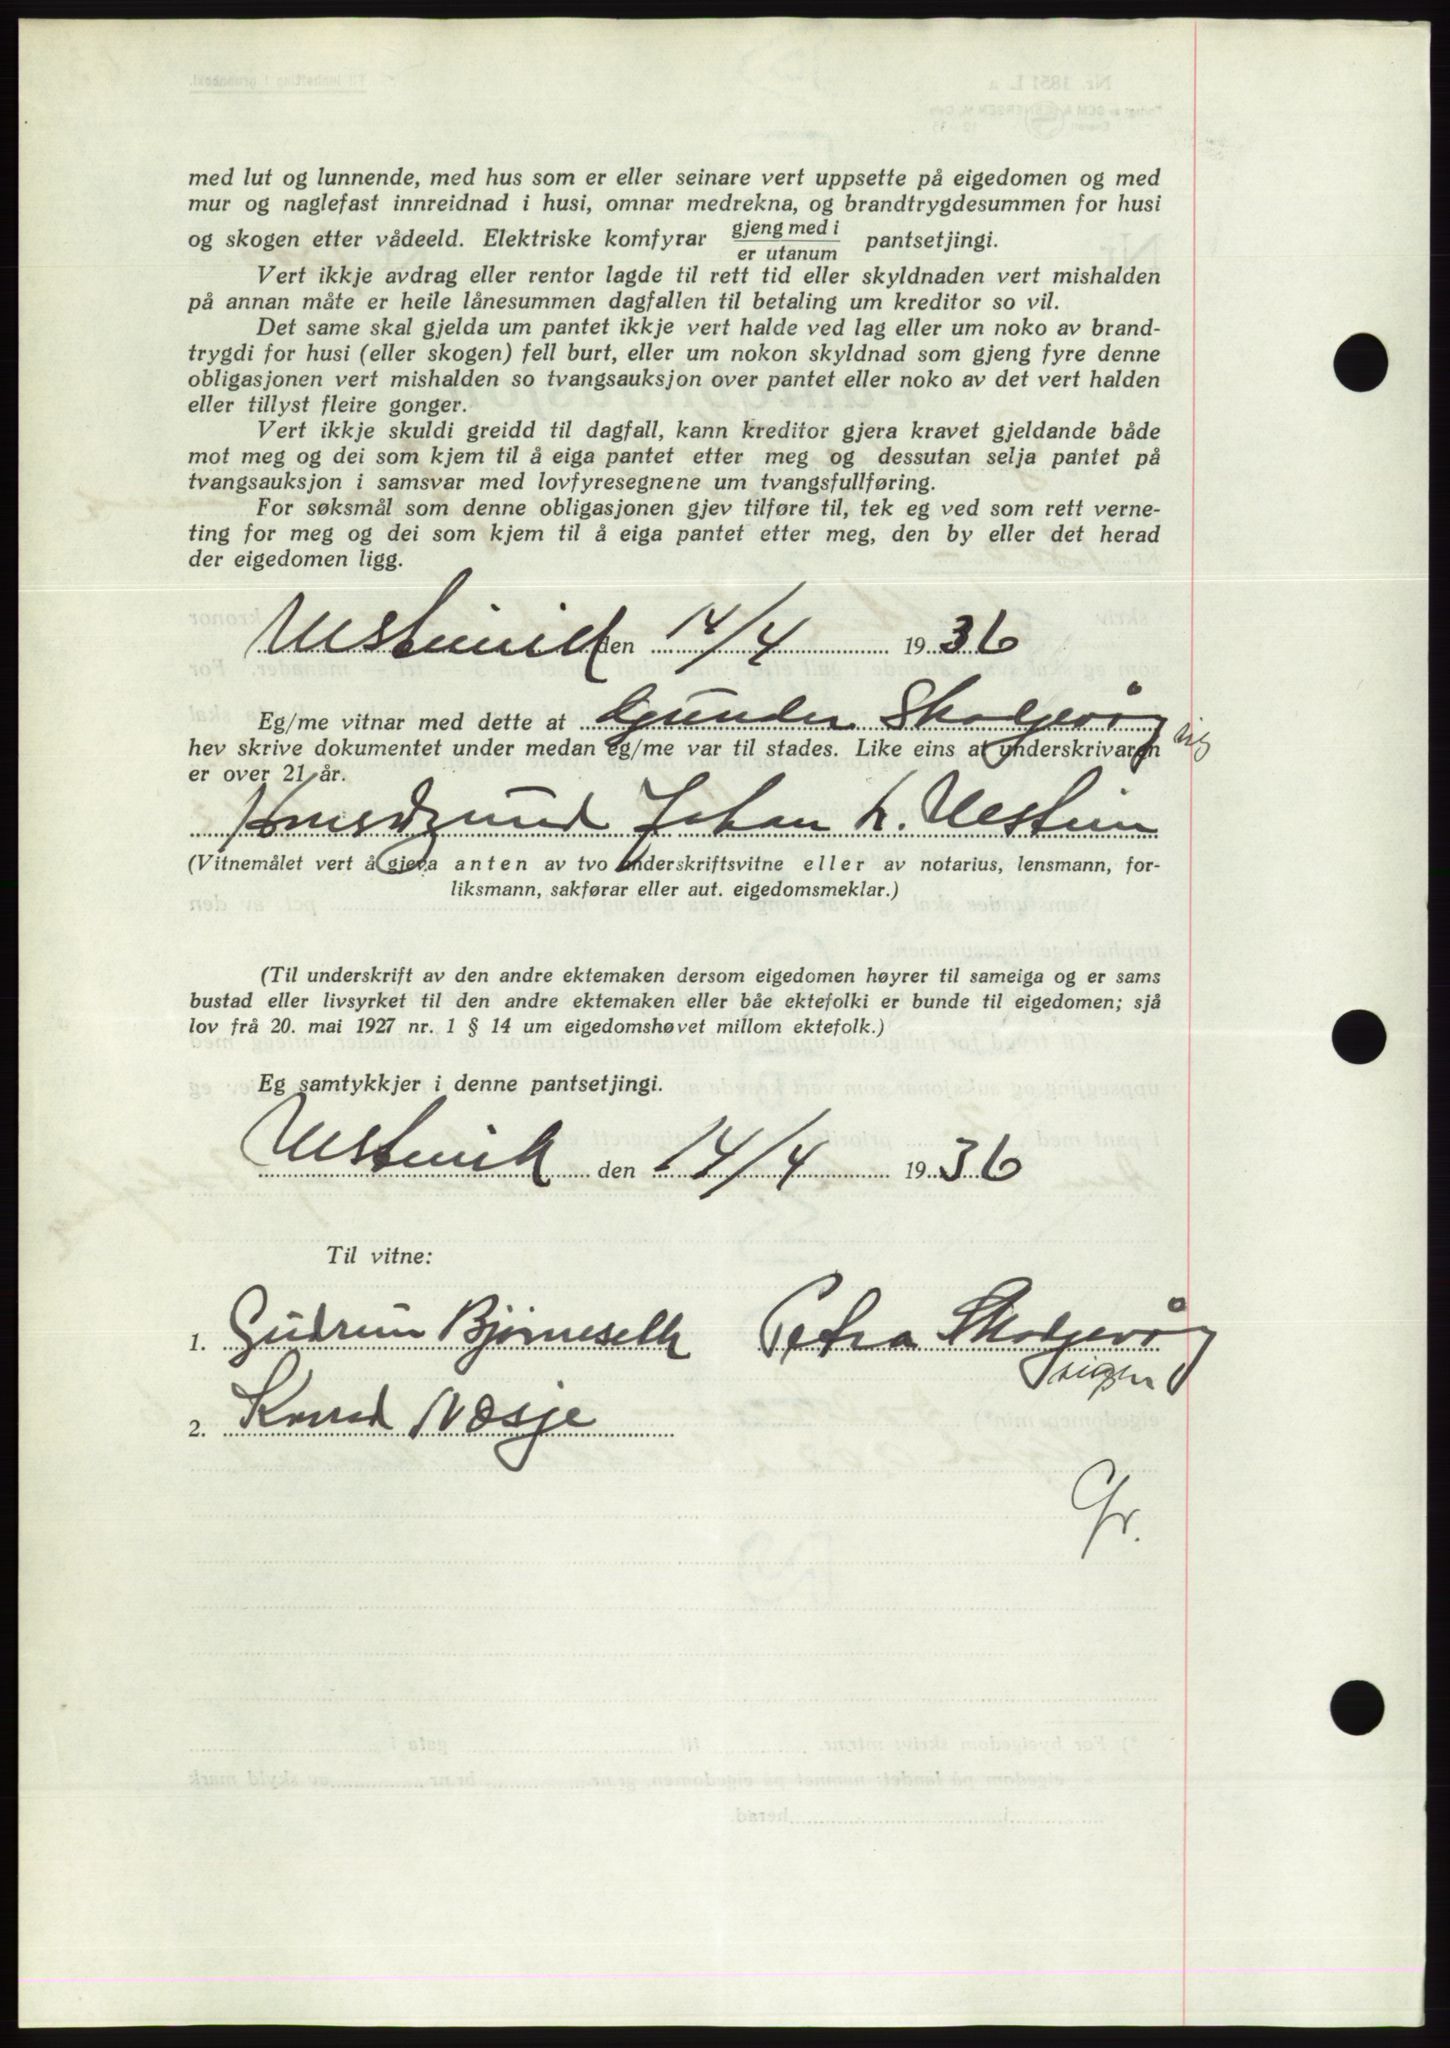 med lut og lunnende, med hus som er eller seinare vert uppsette på eigedomen og med
mur og naglefast innreidnad i husi, omnar medrekna, og brandtrygdesummen for husi
og skogen etter vådeeld. Elektriske komfyrar gjeng med i / er utanum pantsetjingi.
Vert ikkje avdrag eller rentor lagde til rett tid eller skyldnaden vert mishalden
på annan måte er heile lånesummen dagfallen til betaling um kreditor so vil.
Det same skal gjelda um pantet ikkje vert halde ved lag eller um noko av brand-
trygdi for husi (eller skogen) fell burt, eller um nokon skyldnad som gjeng fyre denne
obligasjonen vert mishalden so tvangsauksjon over pantet eller noko av det vert halden
eller tillyst fleire gonger.
Vert ikkje skuldi greidd til dagfall, kann kreditor gjera kravet gjeldande både
mot meg og dei som kjem til å eiga pantet etter meg og dessutan selja pantet på
tvangsauksjon i samsvar med lovfyresegnene um tvangsfullføring.
For søksmål som denne obligasjonen gjev tilføre til, tek eg ved som rett verne-
ting for meg og dei som kjem til å eiga pantet etter meg, den by eller det herad
der eigedomen ligg.
den 14/4 1936
Eg/me vitnar med dette at Gunder Skolgevåg sig
hev skrive dokumentet under medan eg/me var til stades. Like eins at underskrivaren
er over 21 år.
Johan L.
(Vitnemålet vert å gjeva anten av tvo underskriftsvitne eller av notarius, lensmann, for-
liksmann, sakførar eller aut. eigedomsmeklar.)
(Til underskrift av den andre ektemaken dersom eigedomen høyrer til sameiga og er sams
bustad eller livsyrket til den andre ektemaken eller båe ektefolki er bunde til eigedomen; sjå
lov frå 20. mai 1927 nr. 1 § 14 um eigedomshøvet millom ektefolk.)
Eg samtykkjer i denne pantsetjingi.
den 14/4 1936
Til vitne:
1. Gudrun Bjørneseth Petra Skolgevåg
sign
2. Konrad Nesje
Gr.